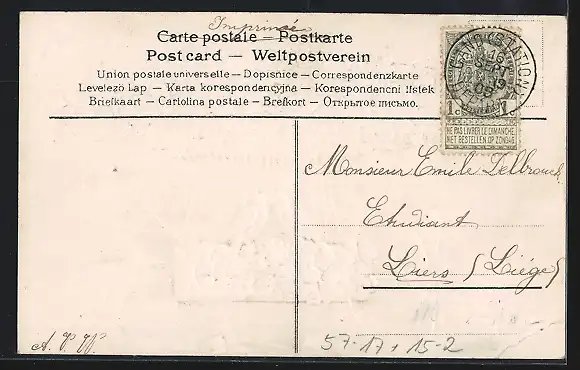 Imprimé
Carte postale — Postkarte
Post card — Weltpostverein
Union postale universelle — Dopisnice — Correspondenzkarte
Levelező Lap — Karta korespondencyjna — Korespondencni listek
Briefkaart — Cartolina postale — Brefkort — Открытое письмо.
GAND (STATION)
1c 1c
NE PAS LIVRER LE DIMANCHE
NIET BESTELLEN OP ZONDAG
Monsieur Emile
Etudiant
Liers (Liége)
57-17+15-2